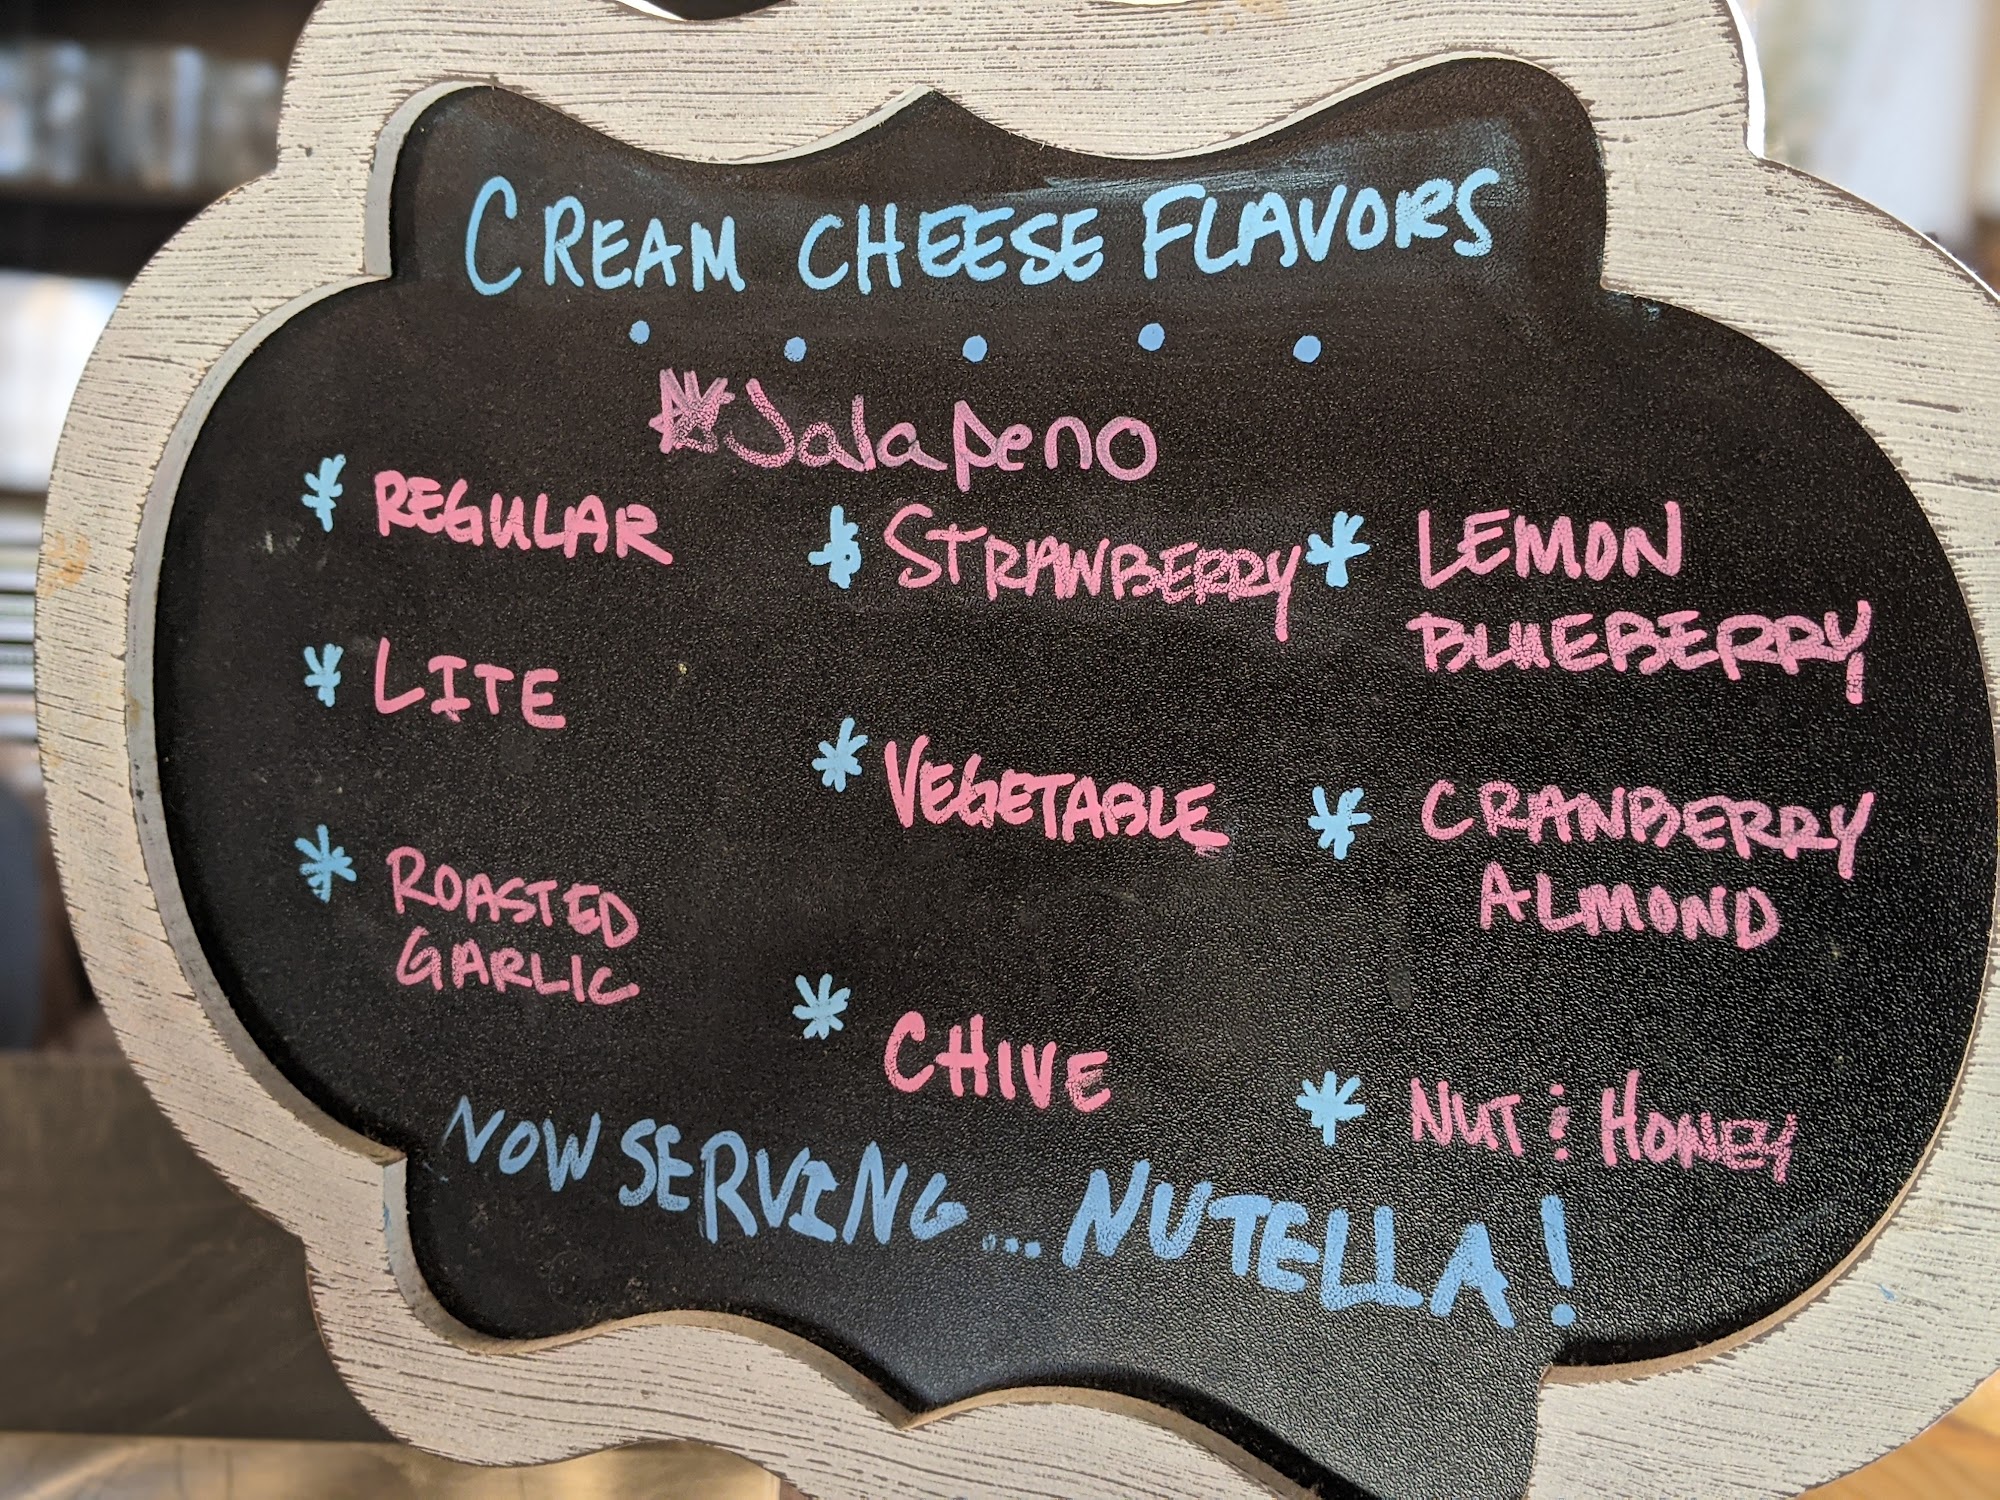 CREAM CHEESE FLAVORS
Jalapeno
* REGULAR
* LITE
* ROASTED
GARLIC
* STRAWBERRY
* VEGETABLE
* CHIVE
* LEMON
BLUEBERRY
* CRANBERRY
ALMOND
* NUT & HONEY
NOW SERVING... NUTELLA!